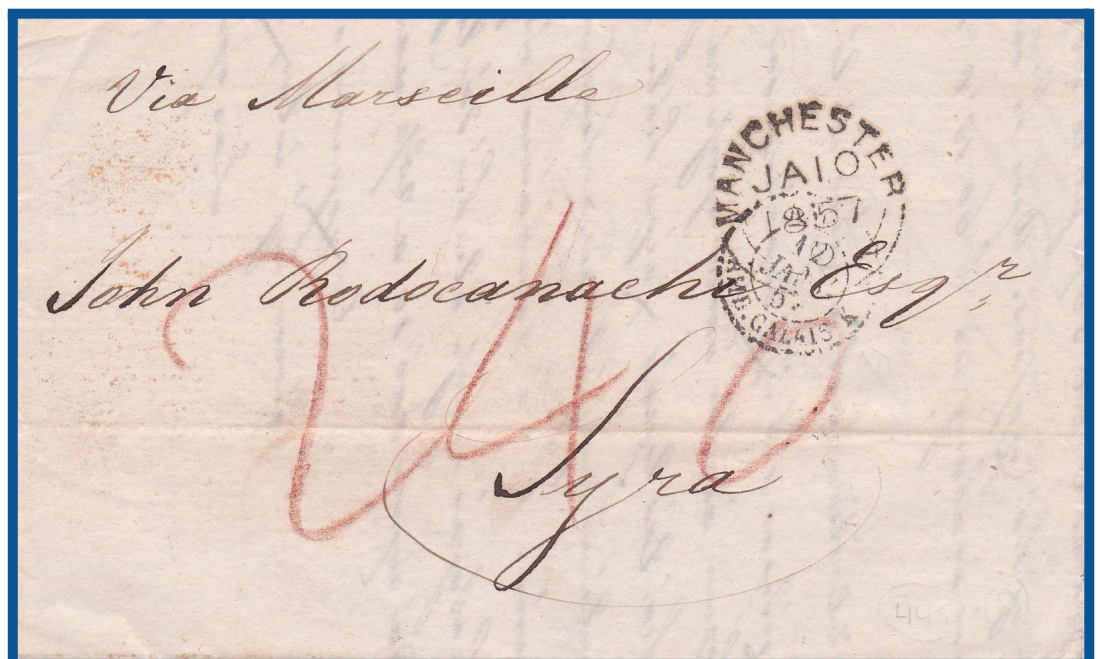 Via Marseille
MANCHESTER
JA 10
1857
12
JAN
57
AMB. CALAIS A
John Rodocanachi Esqr
240
Syra
445